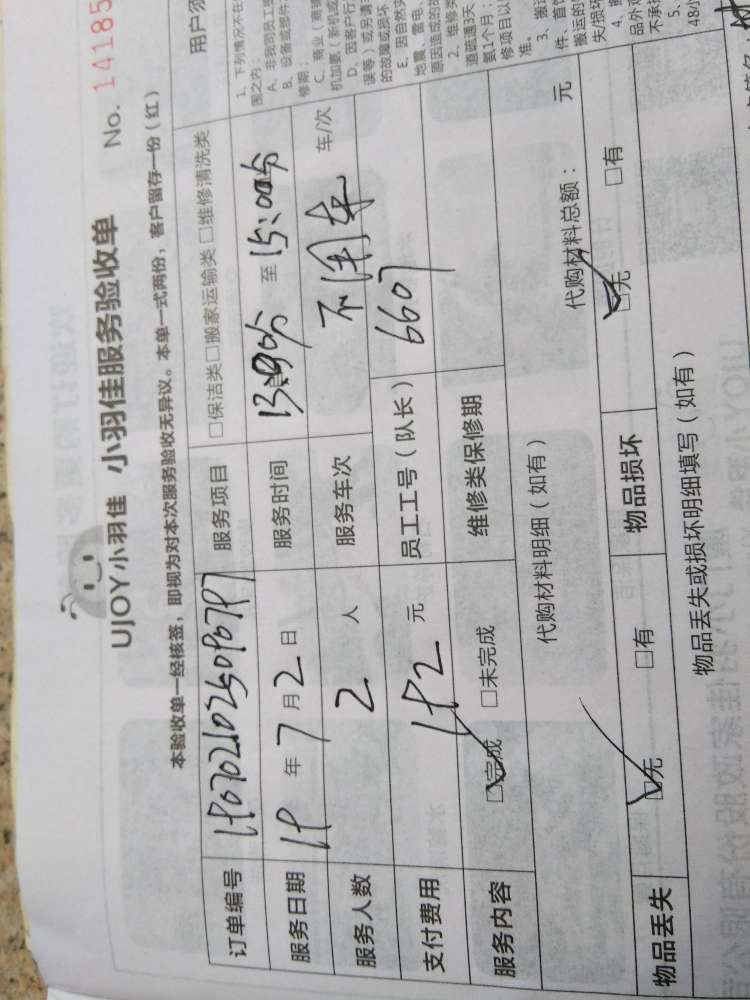 UJOY小羽佳 小羽佳服务验收单 No. 14185
本验收单一经核签，即视为对本次服务验收无异议。本单一式两份，客户留存一份（红）
订单编号 服务项目 □保洁类□搬家运输类□维修清洗类
服务日期 19 年 7 月 2 日 服务时间 至 15:00分
服务人数 2 人 服务车次 不用车 车/次
支付费用 192 元 员工工号（队长） 6607
服务内容 ☑完成 □未完成 维修类保修期
代购材料明细（如有） 代购材料总额： 元
物品丢失 ☑无 □有 物品损坏 ☑无 □有
物品丢失或损坏明细填写（如有）
用户须
1、下列情况不在
围之内：
A、非我司员工
B、设备或部件
修期；
C、商业（商铺
D、因客户行
的故障或损坏
E、因自然灾
地震、雷电、
原因造成的故
2、维修类
道疏通3天
氨1个月；
修项目以
准。
3、搬运
件、首饰
搬运的
失/损坏
4、搬
品外观
不承担
5、
48小